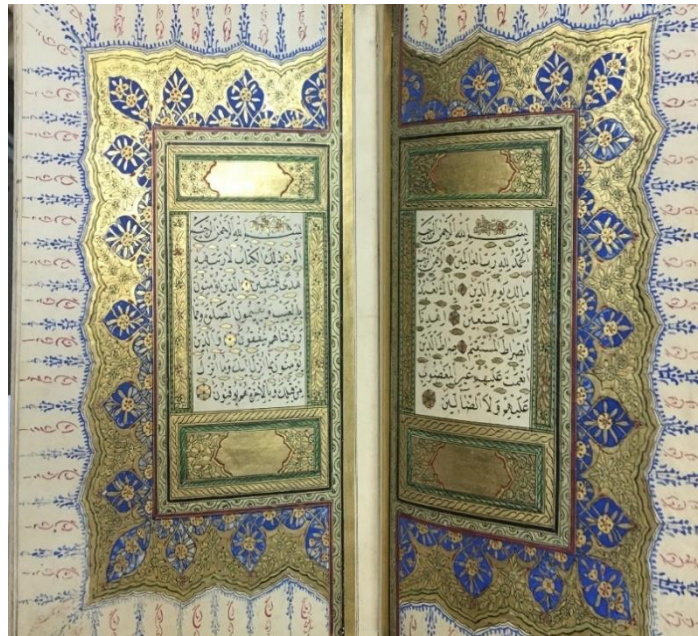 بسم الله الرحمن الرحيم
الحمد لله رب العالمين الرحمن الرحيم
مالك يوم الدين اياك نعبد
واياك نستعين اهدنا
الصراط المستقيم صراط الذين
انعمت عليهم غير المغضوب
عليهم ولا الضالين
بسم الله الرحمن الرحيم
الم ذلك الكتاب لا ريب فيه
هدى للمتقين الذين يؤمنون
بالغيب ويقيمون الصلوة ومما
رزقناهم ينفقون والذين
يؤمنون بما انزل اليك وما انزل
من قبلك وبالاخرة هم يوقنون